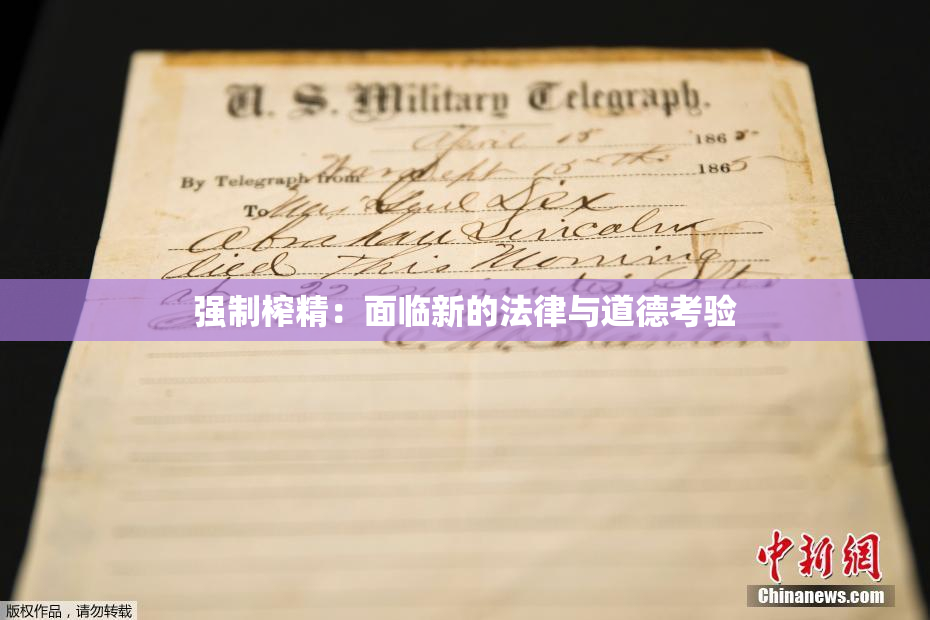 U. S. Military Telegraph.
April 15 1865
By Telegraph from War Dept 15th 1865
To Maj Genl Dix
Abraham Lincoln
died This Morning
at 22 minutes after
强制榨精：面临新的法律与道德考验
E. M. Stanton
中新网
Chinanews.com
版权作品，请勿转载